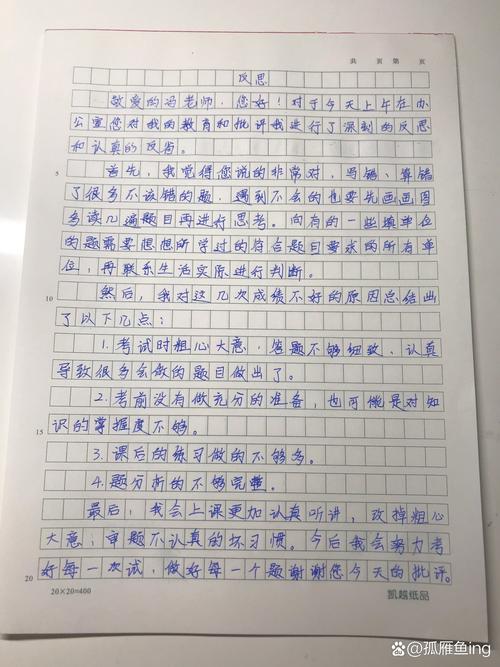 共 页 第 页
反思
敬爱的冯老师，您好！对于今天上午在办
公室您对我的教育和批评我进行了深刻的反思
和认真的反省。
5
首先，我觉得您说的非常对，写错、算错
了很多不该错的题，遇到不会的也要先画画图
多读几遍题目再进行思考。向有的一些填单位
的题需要想想所学过的符合题目要求的所有单
位，再联系生活实际进行判断。
10
然后，我对这几次成绩不好的原因总结出
了以下几点：
1.考试时粗心大意，答题不够细致、认真
导致很多会做的题目做出了。
2.考前没有做充分的准备，也可能是对知
15
识的掌握度不够。
3.课后的练习做的不够多。
4.题分析的不够完整。
最后，我会上课更加认真听讲，改掉粗心
大意；审题不认真的坏习惯。今后我会努力考
20
好每一次试，做好每一个题谢谢您今天的批评。
20×20=400
凯越纸品
Bai百家号/孤雁鱼ing